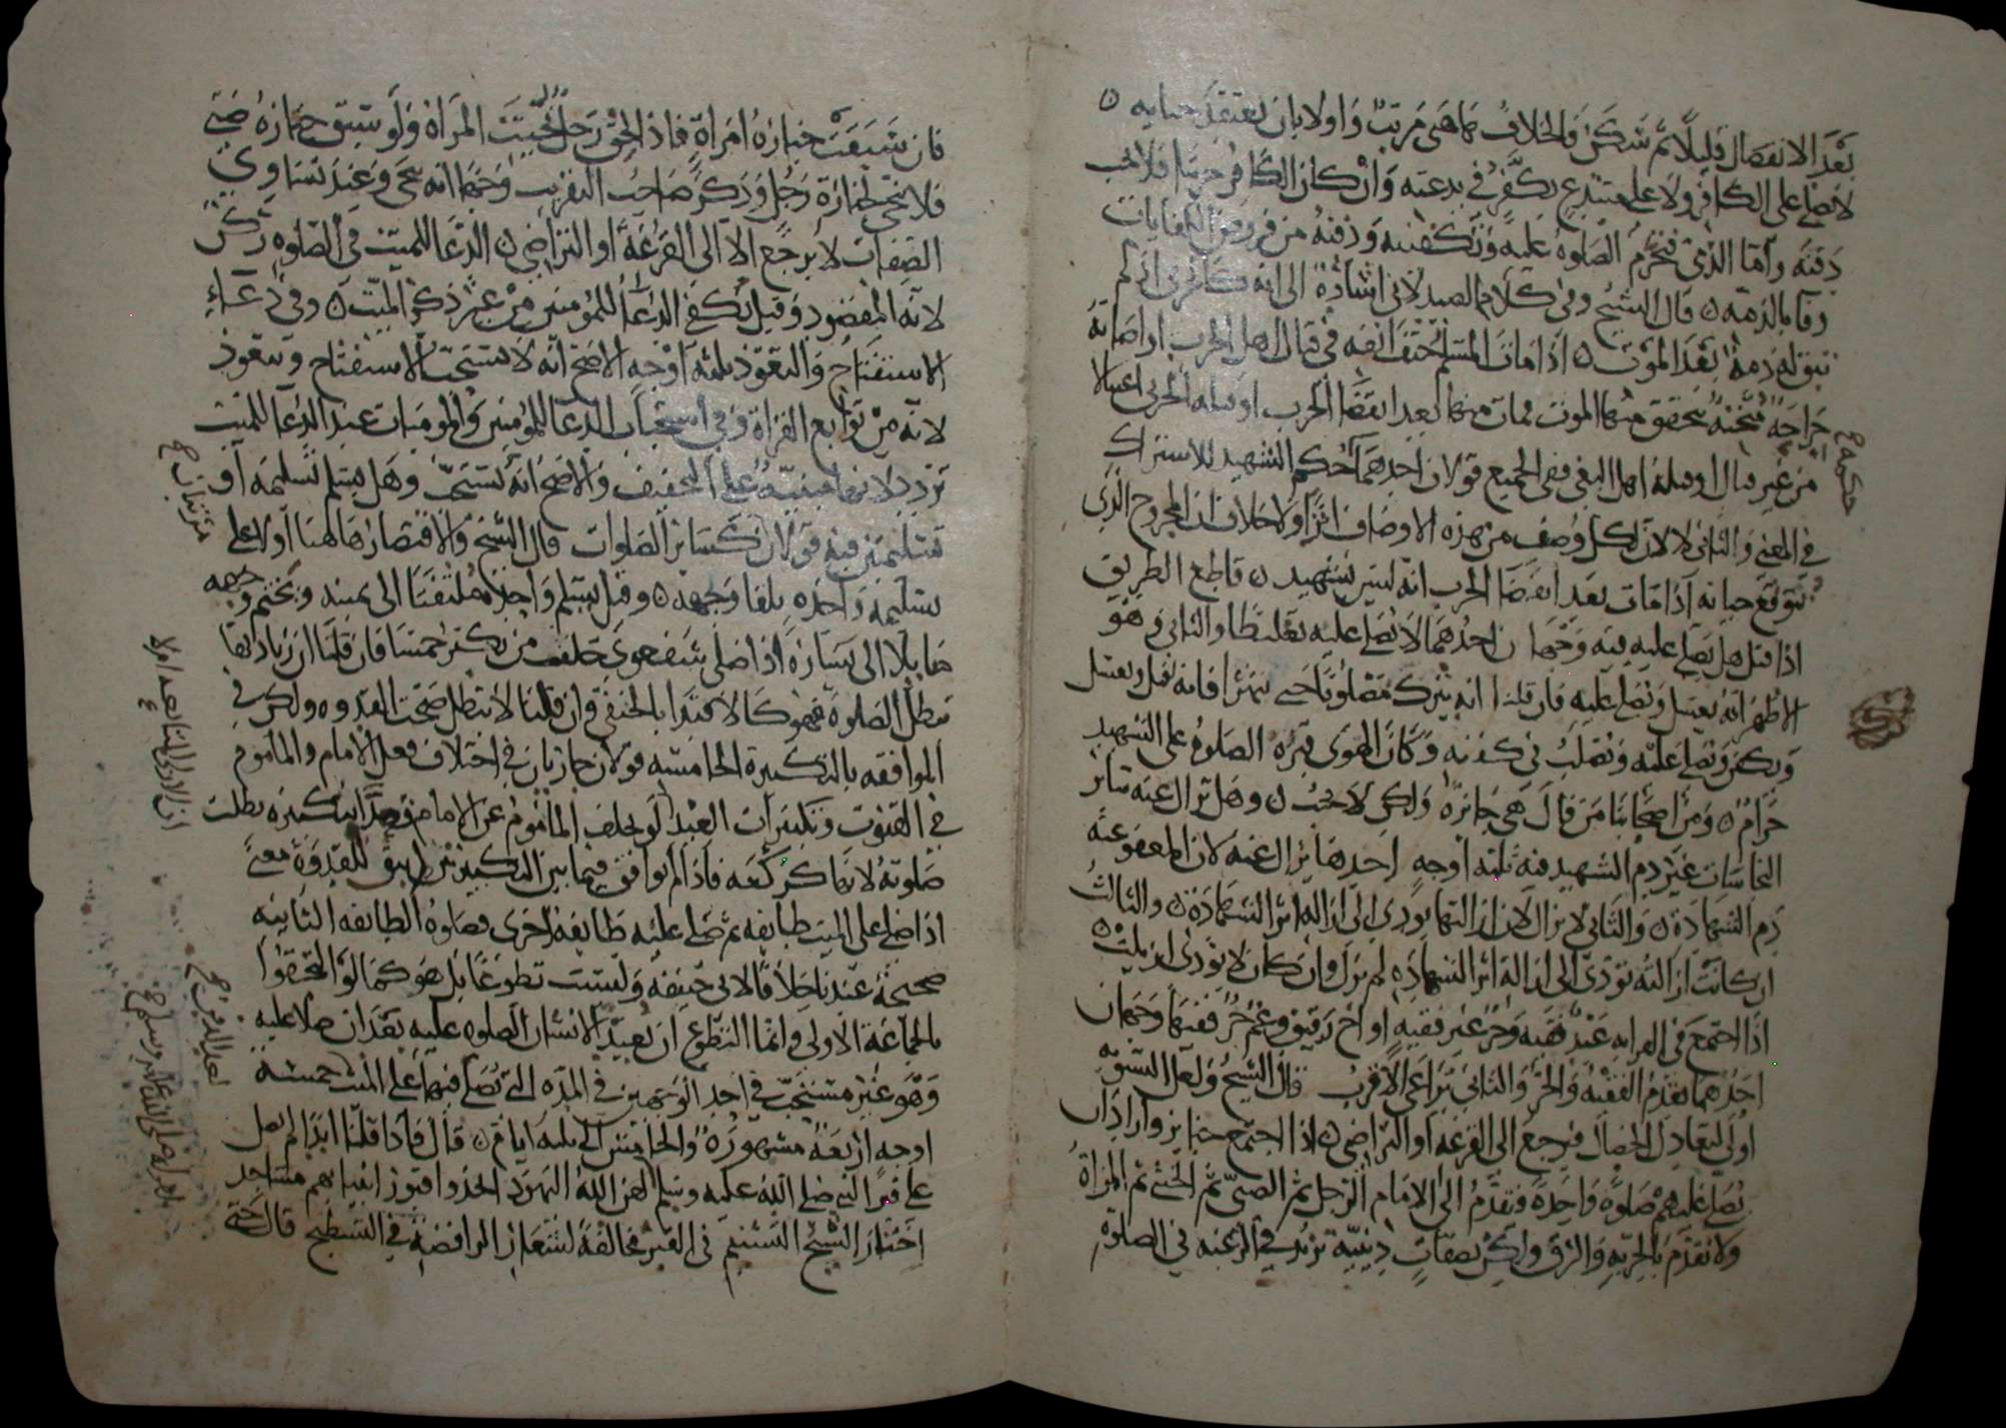 بعد الانفصال قليلا ثم سكن فالخلاف هاهنا مرتب واولا بان يعتقد حياته ٥
لا يصلي على الكافر ولا على مبتدع يكفر في بدعته وان كان الكافر حربيا فلا يجب
دفنه واما الذي فتحرم الصلوة عليه وتكفينه ودفنه من فروض الكفايات
وفا بالذمة ٥ قال الشيخ وفي كلام الصيدلاني اشارة الى انه كالحربي اذ لم
تبق له ذمة بعد الموت ٥ اذا مات المسلم حتف انفه في قتال اهل الحرب او اصابته
جراحة مثخنة يتحقق منها الموت فمات منها بعد انقضا الحرب او قتله الحربي اغتيالا
من غير قتال او قتله اهل البغي ففي الجميع قولان احدهما حكم الشهيد للاشتراك
في المعنى والثاني لا لان لكل وصف من هذه الاوصاف اثرا ولا خلاف ان المجروح الذي
يتوقع حياته اذا مات بعد انقضا الحرب انه ليس بشهيد ٥ قاطع الطريق
اذا قتل هل يصلى عليه فيه وجهان احدهما لا يصلى عليه تغليظا والثاني وهو
الاظهر انه يغسل ويصلى عليه فان قلنا انه يترك مصلوبا حتى يتهرا فانه يقتل ويغسل
ويكفن ويصلى عليه ويصلب في كفنه وكان الهوى قبره الصلوة على الشهيد
حرام ٥ ومن اصحابنا من قال هي جائزة ولكن لا تجب ٥ وهل تزال عنه سائر
النجاسات غير دم الشهيد فيه ثلثة اوجه احدها تزال عنه لان المعفو عنه
دم الشهادة ٥ والثاني لا تزال لان ازالتها يودي الى ازالة اثر الشهادة ٥ والثالث
ان كانت ازالته تودي الى ازالة اثر الشهادة لم تزل وان كان لا يودي ازيلت ٥
اذا اجتمع في القرابة عبد فقيه وحر غير فقيه او اخ رقيق وعم حر ففيها وجهان
احدهما تقدم الفقيه والحر والثاني تراعى الاقرب قال الشيخ ولعل التسوية
اولى لتعادل الخصال فيرجع الى القرعة او التراضي ٥ اذا اجتمع جنائز واراد ان
يصلي عليهم صلوة واحدة فتقدم الى الامام الرجل ثم الصبي ثم الخنثى ثم المراة
ولا تقدم بالحرية والرق ولكن بصفات دينية تزيد في الرغبة في الصلوة
فان سبقت جنازة امراة فاذا لحق رجل نحيت المراة ولو سبق جنازة صبي
فلا تنحى لجنازة رجل وذكر صاحب التقريب وجها انه ينحى وعند تساوي
الصفات لا يرجع الا الى القرعة او التراضي ٥ الدعا للميت في الصلوة ركن
لانه المقصود وقيل يكفي الدعا للمؤمنين من غير ذكر الميت ٥ وفي دعاء
الاستفتاح والتعوذ ثلثة اوجه الاصح انه لا يستحب الاستفتاح ويتعوذ
لانه من توابع القراة وفي استحباب الدعا للمؤمنين والمؤمنات عند الدعا للميت
تردد لانها مبنية على التخفيف والاصح انه يستحب وهل يسلم تسليمة او
تسليمتين فيه قولان كسائر الصلوات قال الشيخ والاقتصار هاهنا اولا على
تسليمة واحدة تلقا وجهه ٥ وقيل يسلم واحدة ملتفتا الى يمينه ويختم وجهه
مايلا الى يساره اذا صلى شفعوي خلف من يكبر خمسا فان قلنا ان زيادتها
تبطل الصلوة فهو كالاقتدا بالحنفي وان قلنا لا تبطل صحت القدوة ولكن في
الموافقة بالتكبيرة الخامسة قولان جاريان في اختلاف فعل الامام والماموم
في القنوت وتكبيرات العيد لو تخلف الماموم عن الامام قصدا بتكبيرة بطلت
صلوته لانها كركعة فاذا لم يوافق فيما بين التكبيرتين لم يبق للقدوة معنى
اذا صلى على الميت طايفه ثم صلى عليه طايفة اخرى فصلوة الطايفه الثانيه
صحيحة عندنا خلافا لابي حنيفه وليست تطوعا بل هو كما لو التحقوا
بالجماعة الاولى وانما التطوع ان يعيد الانسان الصلوه عليه بعد ان صلا عليه
وهو غير مستحب في احد الوجهين في المدة التي تصلى فيها على الميت خمسة
اوجه اربعة مشهورة والخامس الى ثلثة ايام ٥ قال فاذا قلنا ابدا لم يصل
على قبر النبي صلى الله عليه وسلم لعن الله اليهود اتخذوا قبور انبيائهم مساجد
اختار الشيخ التسنيم في القبر مخالفة لشعار الرافضة في التسطيح قال حتى